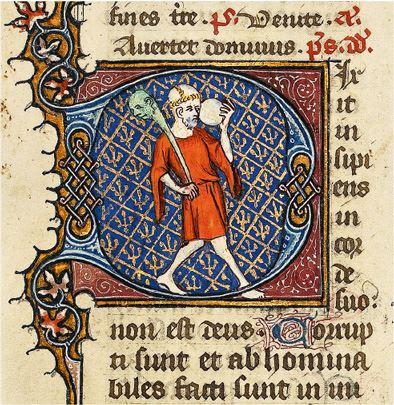 fines tre. ps. Venite. a.
Avertet dominus. ps. D.
D
ix
it
in
sipi
ens
in
cor
de
suo:
non est deus. Corrup
ti sunt et abhomina
biles facti sunt in ini